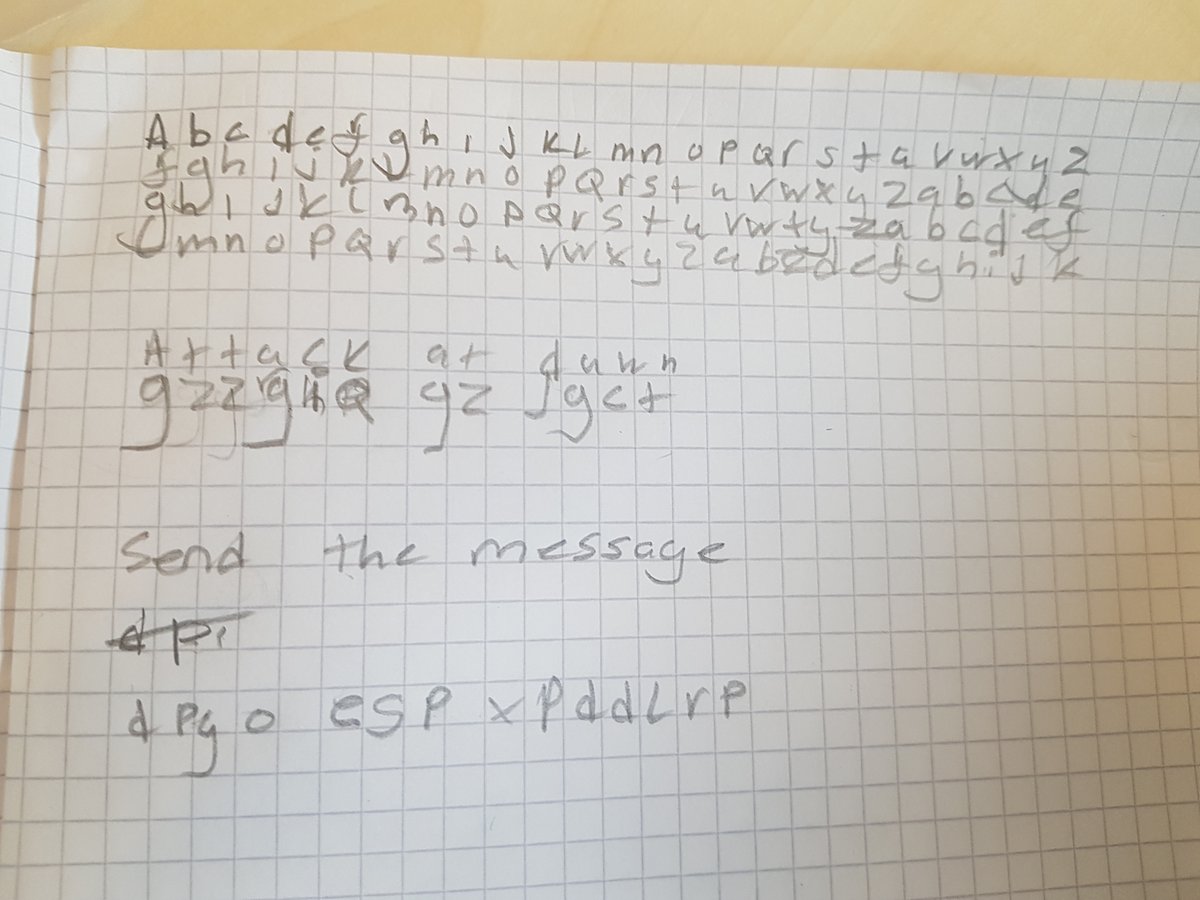 A b c d e f g h i j k L m n o p q r s t u v w x y z
f g h i j k l m n o p Q r s t u v w x y z a b c d e
g h i j k l m n o p Q r s t u v w x y z a b c d e f
l m n o p Q r s t u v w x y z a b c d e f g h i j k
A t t a c k at dawn
g z z g i Q gz jgct
Send the message
dpi
dpyo esp xpddlrp